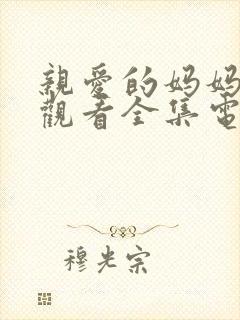 親愛的妈妈
觀看全集電
穆光宗